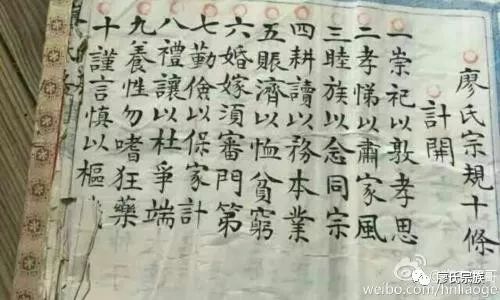 廖氏宗規十條
計開
一崇祀以敦孝思
二孝悌以肅家風
三睦族以念同宗
四耕讀以務本業
五賑濟以恤貧窮
六婚嫁須審門第
七勤儉以保家計
八禮讓以杜爭端
九養性勿嗜狂藥
十謹言慎以樞
廖氏宗族
weibo.com/hnliaoge